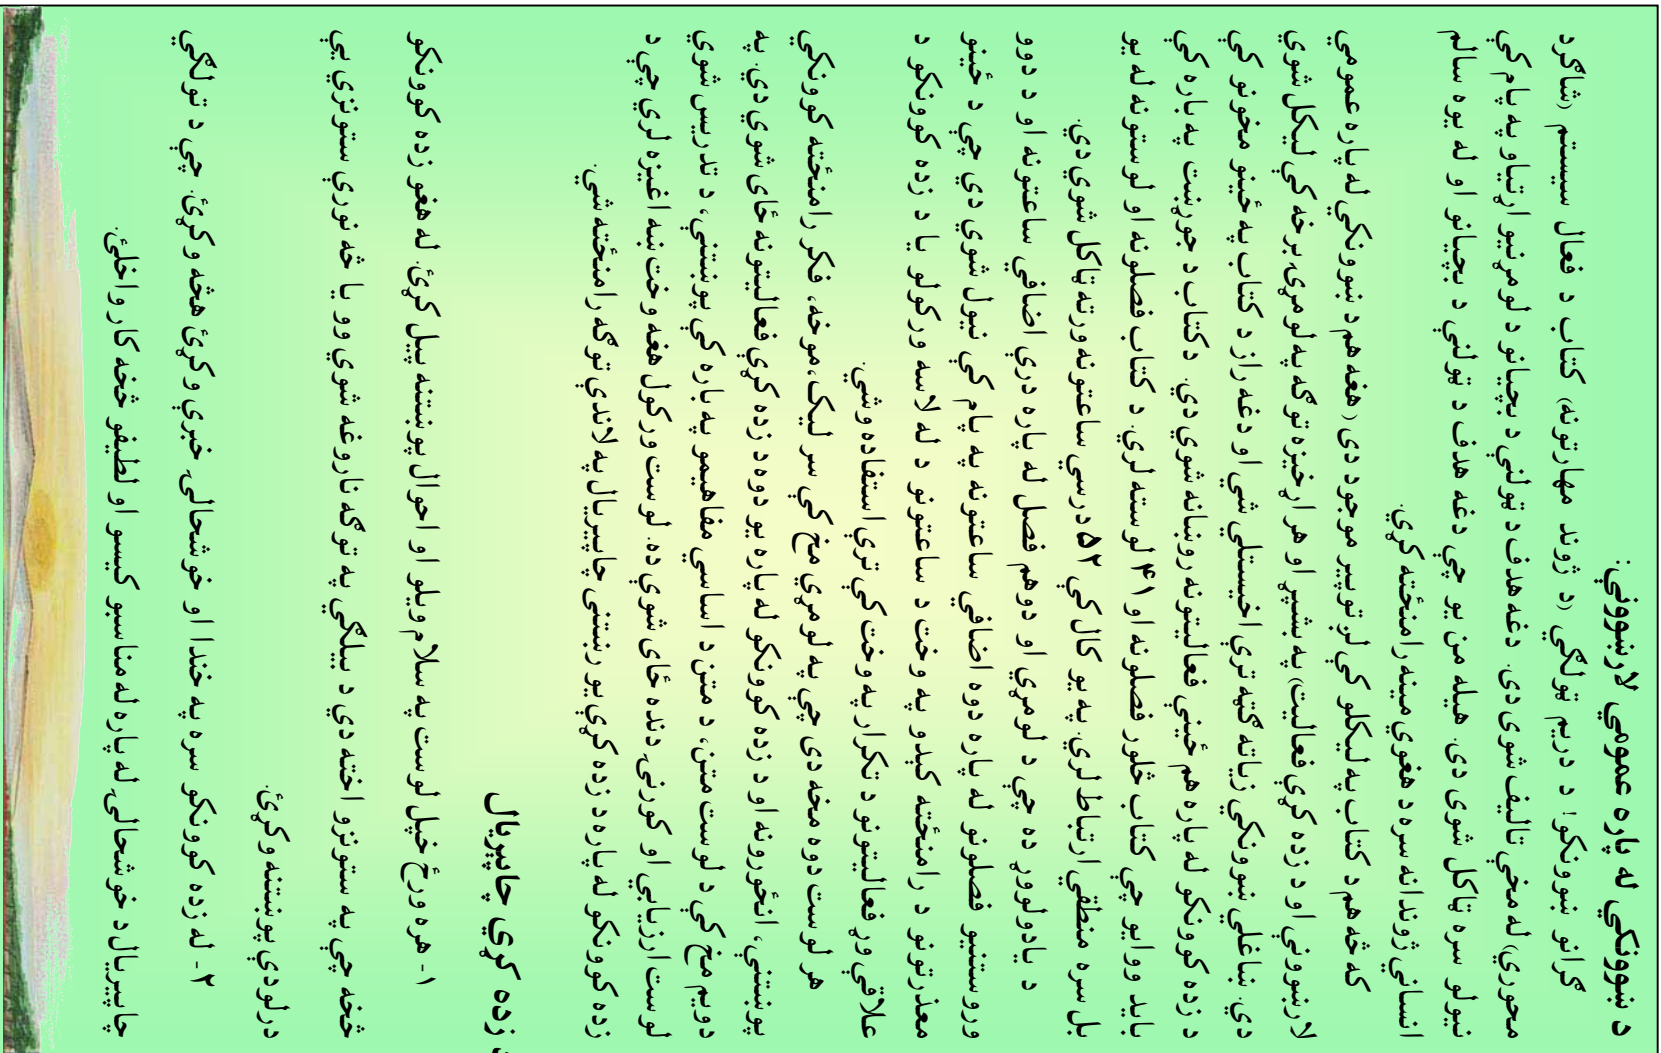 د ښوونکي له پاره عمومي لارښوونې:
ګرانو ښوونکو! د دريم ټولګي (د ژوند مهارتونه) کتاب د فعال سيستم (شاګرد
محوري) له مخې تاليف شوی دی. دغه هدف د ټولنې د بچيانو د لومړنيو اړتياو په پام کې
نيولو سره ټاکل شوی دی. هيله من يو چې دغه هدف د ټولنې د بچيانو او له يوه سالم
انساني ژوندانه سره د هغوي مينه رامنځته کړي.
که څه هم د کتاب په ليکلو کې لږ توپير موجود دی (هغه هم د ښوونکي له پاره عمومي
لارښوونې او د زده کړې فعاليت) په بشپړ او هر اړخيزه توګه په لومړۍ برخه کې ليکل شوي
دي. ښاغلي ښوونکي زياته ګټه ترې اخيستلی شي او دغه راز د کتاب په ځينو مخونو کې
د زده کوونکو له پاره هم ځينې فعاليتونه روښانه شوي دي. د کتاب د جوړښت په باره کې
بايد ووايو چې کتاب څلور فصلونه او ۴۱ لوسته لري. د کتاب فصلونه او لوستونه له يو
بل سره منطقي ارتباط لري. په يو کال کې ۵۲ درسي ساعتونه ورته ټاکل شوي دي.
د يادولوړ ده چې د لومړي او دوهم فصل له پاره درې اضافي ساعتونه او د دوو
وروستنيو فصلونو له پاره دوه اضافي ساعتونه په پام کې نيول شوي دي چې د ځينو
معذرتونو د رامنځته کېدو په وخت د ساعتونو د له لاسه ورکولو يا د زده کوونکو د
علاقې وړ فعاليتونو د تکرار په وخت کې ترې استفاده وشي.
هر لوست دوه مخه دی چې په لومړي مخ کې سر ليک، موخه، فکر رامنځته کوونکې
پوښتنې، انځورونه او د زده کوونکو له پاره يو دوه د زده کړې فعاليتونه ځای شوي دي. په
دويم مخ کې د لوست متن، د متن د اساسي مفاهيمو په باره کې پوښتنې، د تدريس شوي
لوست ارزيابي او کورنۍ دنده ځای شوې ده. لوست ورکول هغه وخت ښه اغېزه لري چې د
زده کوونکو له پاره د زده کړې يو رښتنی چاپيريال په لاندې توګه رامنځته شي.
زده کړې چاپيريال
۱- هره ورځ خپل لوست په سلام ويلو او احوال پوښتنه پيل کړئ. له هغو زده کوونکو
څخه چې په ستونزو اخته دي د بېلګې په توګه ناروغه شوي وو يا څه نورې ستونزې يې
درلودې پوښتنه وکړئ.
۲- له زده کوونکو سره په خندا او خوشحالۍ خبرې وکړئ هڅه وکړئ. چې د ټولګي
چاپيريال د خوشحالۍ له پاره له مناسبو کيسو او لطيفو څخه کار واخلئ.